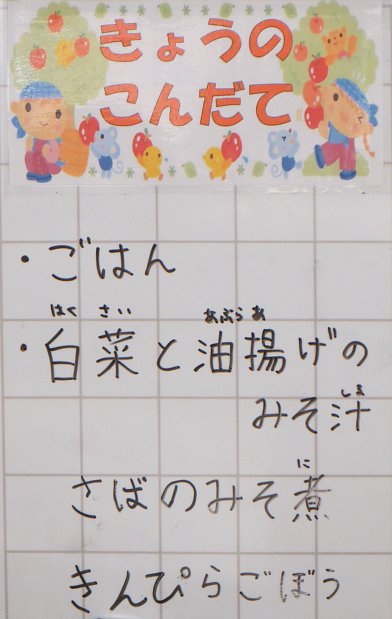 きょうの
こんだて
・ごはん
はく さい あぶら あ
・白菜と油揚げの
しる
みそ汁
に
さばのみそ煮
きんぴらごぼう